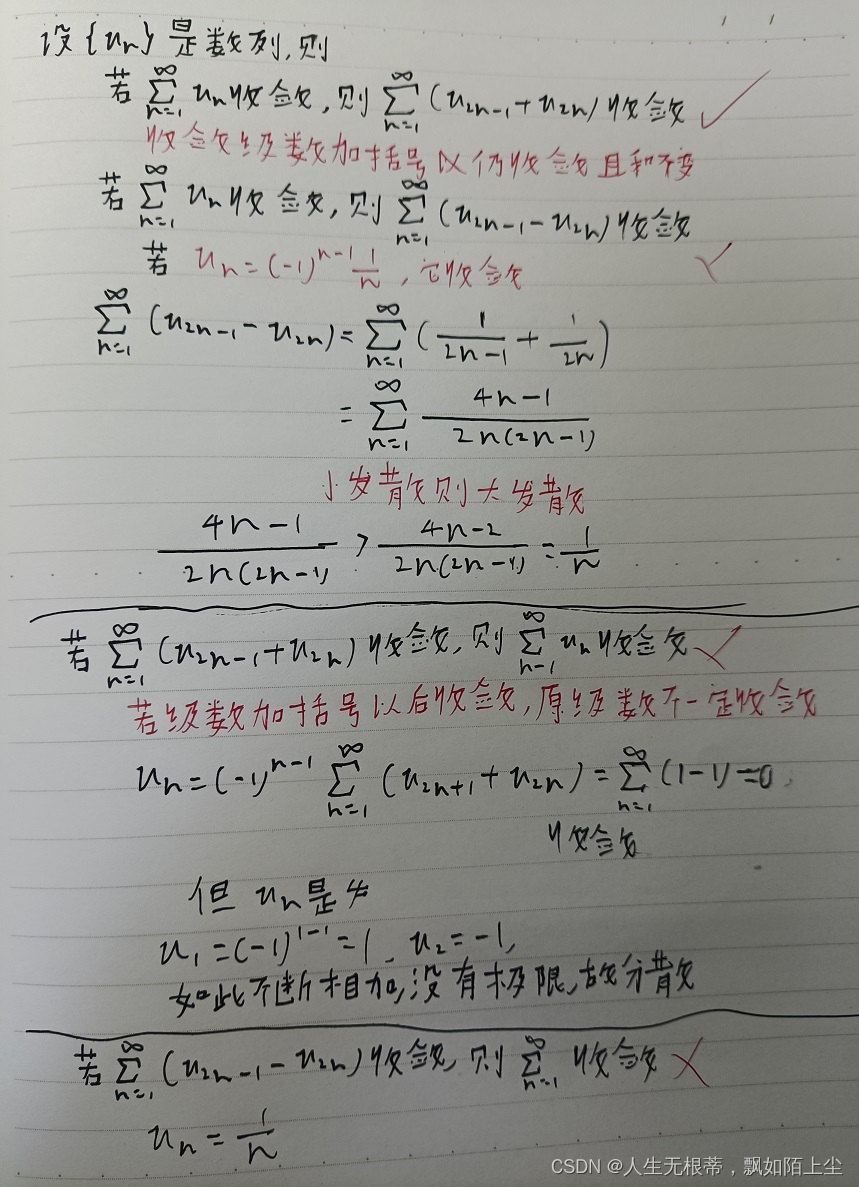 设{uₙ}是数列,则
若 ∑_{n=1}^{∞} uₙ收敛,则 ∑_{n=1}^{∞} (u_{2n-1}+u_{2n})收敛 ✓
收敛级数加括号以仍收敛且和不变
若 ∑_{n=1}^{∞} uₙ收敛,则 ∑_{n=1}^{∞} (u_{2n-1}-u_{2n})收敛
若 uₙ=(-1)^{n-1} 1/n ,它收敛
∑_{n=1}^{∞} (u_{2n-1}-u_{2n})=∑_{n=1}^{∞} (1/(2n-1) + 1/(2n))
=∑_{n=1}^{∞} (4n-1)/(2n(2n-1))
小发散则大发散
(4n-1)/(2n(2n-1)) > (4n-2)/(2n(2n-1)) = 1/n
若 ∑_{n=1}^{∞} (u_{2n-1}+u_{2n})收敛,则 ∑_{n-1}^{∞} uₙ收敛
若级数加括号以后收敛,原级数不一定收敛
uₙ=(-1)^{n-1} ∑_{n=1}^{∞} (u_{2n+1}+u_{2n})=∑_{n=1}^{∞} (1-1)=0
收敛
但 uₙ是
u₁=(-1)^{1-1}=1, u₂=-1,
如此不断相加,没有极限,故分散
若 ∑_{n=1}^{∞} (u_{2n-1}-u_{2n})收敛,则 ∑_{n=1}^{∞} 收敛 ✗
uₙ=1/n
CSDN @人生无根蒂，飘如陌上尘